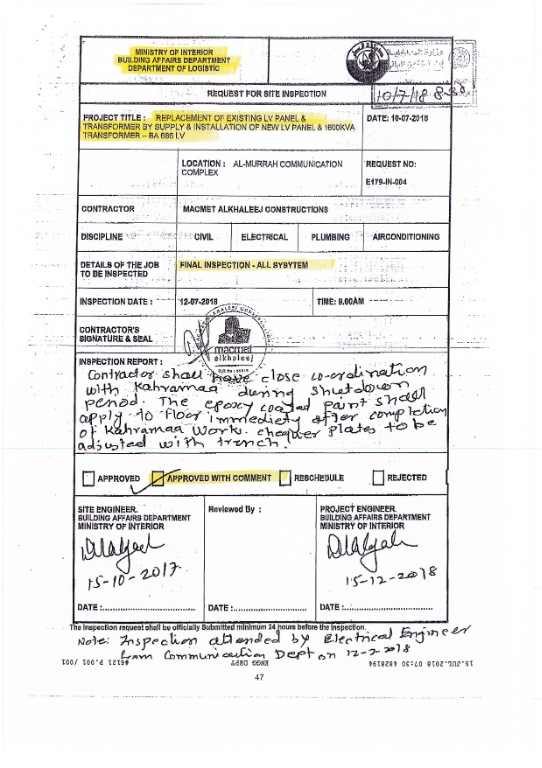 MINISTRY OF INTERIOR
BUILDING AFFAIRS DEPARTMENT
DEPARTMENT OF LOGISTIC
10/7/18 8-30
REQUEST FOR SITE INSPECTION
PROJECT TITLE : REPLACEMENT OF EXISTING LV PANEL &
TRANSFORMER BY SUPPLY & INSTALLATION OF NEW LV PANEL & 1600KVA
TRANSFORMER – BA 686 LV
DATE: 10-07-2018
LOCATION : AL-MURRAH COMMUNICATION
COMPLEX
REQUEST NO:
E179-IN-004
CONTRACTOR MACMET ALKHALEEJ CONSTRUCTIONS
DISCIPLINE CIVIL ELECTRICAL PLUMBING AIRCONDITIONING
DETAILS OF THE JOB
TO BE INSPECTED
FINAL INSPECTION - ALL SYSYTEM
INSPECTION DATE : 12-07-2018 TIME: 9.00AM
CONTRACTOR'S
SIGNATURE & SEAL
macmet
alkhaleej
INSPECTION REPORT :
Contractor shall have close co-ordination
with Kahramaa during shutdown
period. The epoxy coated paint shall
apply to floor immediety after completion
of Kahramaa work. chequer plates to be
adjusted with trench.
APPROVED APPROVED WITH COMMENT RESCHEDULE REJECTED
SITE ENGINEER.
BUILDING AFFAIRS DEPARTMENT
MINISTRY OF INTERIOR
15-10-2017
DATE :
Reviewed By :
DATE :
PROJECT ENGINEER.
BUILDING AFFAIRS DEPARTMENT
MINISTRY OF INTERIOR
15-12-2018
DATE :
The Inspection request shall be officially Submitted minimum 24 hours before the Inspection.
Note: Inspection attended by Electrical Engineer
from Communication Dept on 12-2-2018
15.JUL.2018 07:30 4628194 ENGG DEPT #6121 P.001 /001
47